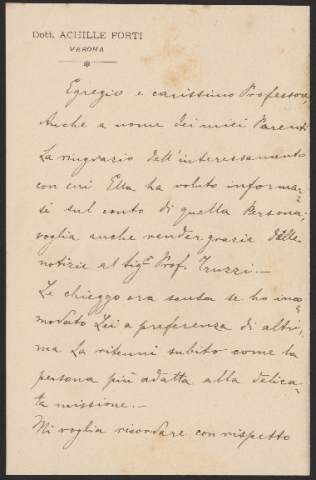 Dott. ACHILLE FORTI
VERONA
Egregio e carissimo Professore,
Anche a nome dei miei Parenti
La ringrazio dell'interessamento
con cui Ella ha voluto informar=
si sul conto di quella Persona;
voglia anche render grazie delle
notizie al Sigr. Prof. Truzzi.—
Le chieggo ora scusa se ho inco=
modato Lei a preferenza di altri,
ma La ritenni subito come la
persona più adatta alla delica=
ta missione.—
Mi voglia ricordare con rispetto